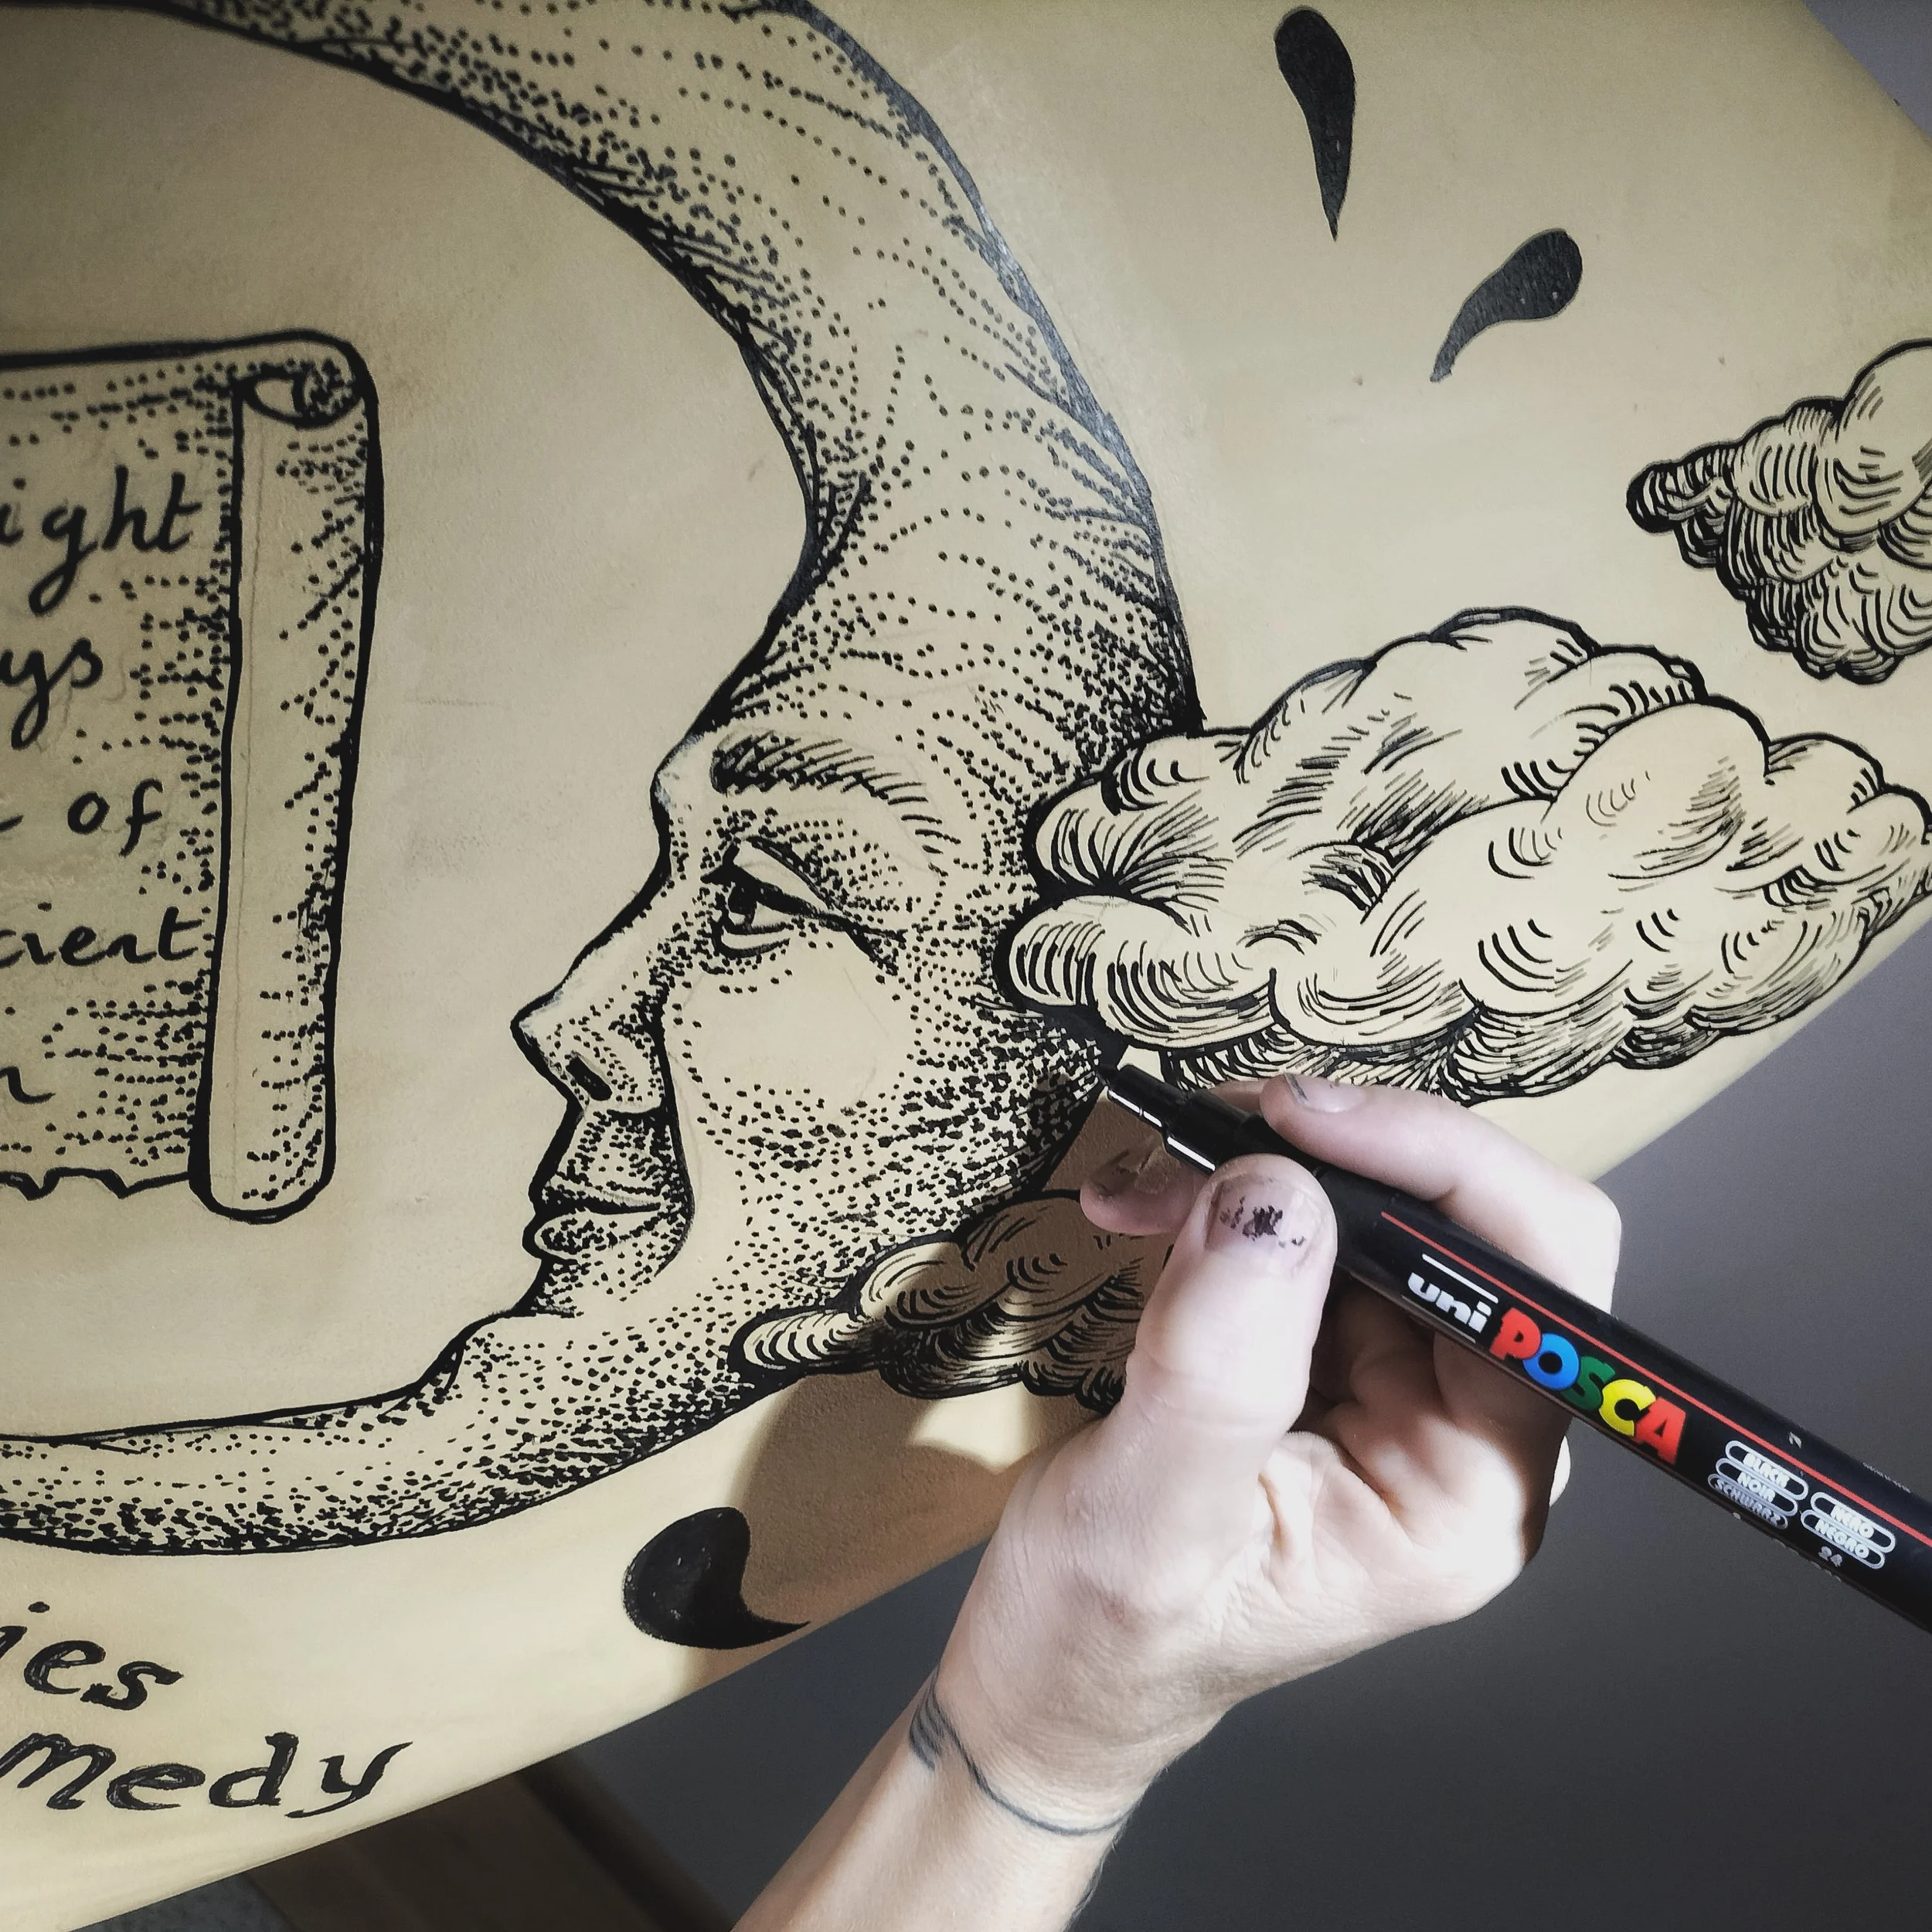 ight
ys
of
cient
ies
medy
uni POSCA
BLACK
NOIR
SCHWARZ
NERO
NEGRO
24